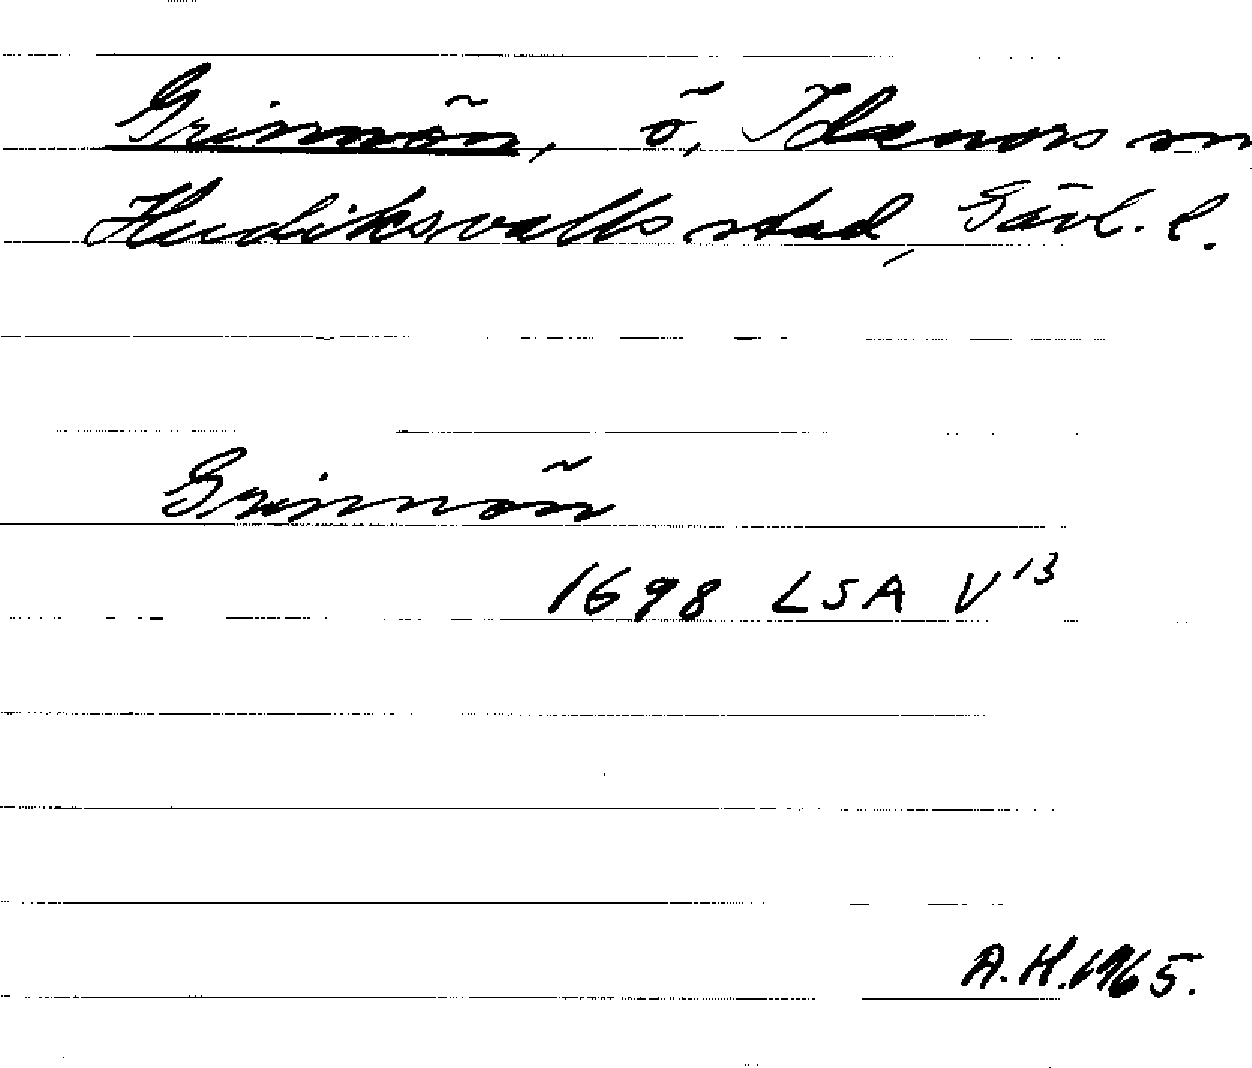 Grimön, ö, Idenors sn
Hudiksvalls stad, Gävl. l.
Grimön
1698 LSA V¹³
A.H. 1965.